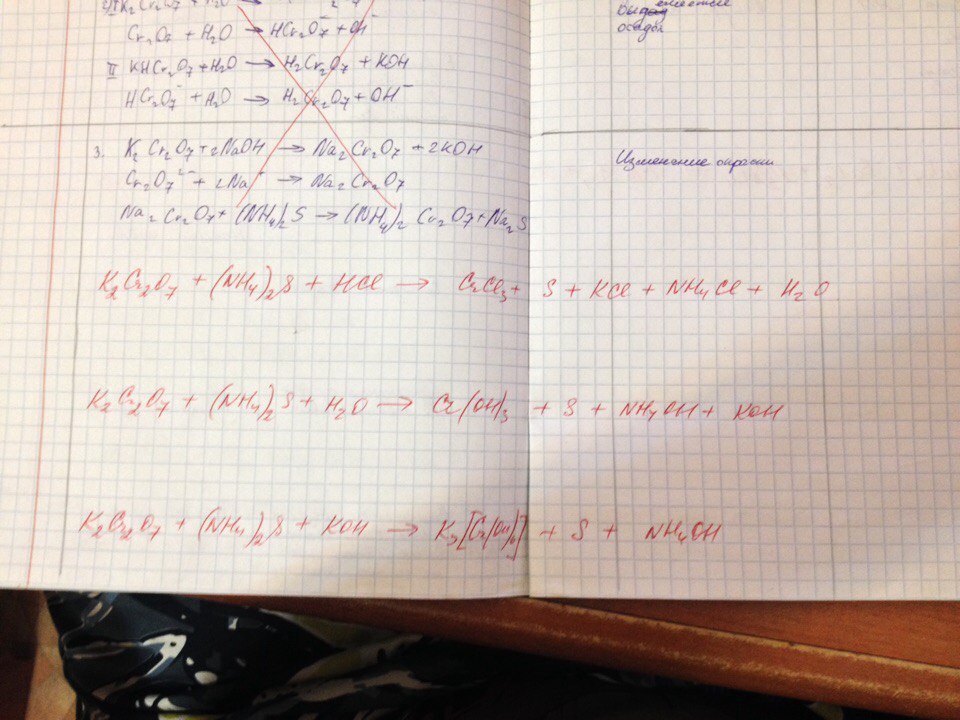 K₂Cr₂O₇ + H₂O →
Cr₂O₇ + H₂O → HCr₂O₇⁻ + OH⁻
II KHCr₂O₇ + H₂O → H₂Cr₂O₇ + KOH
HCr₂O₇⁻ + H₂O → H₂Cr₂O₇ + OH⁻
осадок
3. K₂Cr₂O₇ + 2NaOH → Na₂Cr₂O₇ + 2KOH
Изменение окраски
Cr₂O₇²⁻ + 2Na⁺ → Na₂Cr₂O₇
Na₂Cr₂O₇ + (NH₄)₂S → (NH₄)₂Cr₂O₇ + Na₂S
K₂Cr₂O₇ + (NH₄)₂S + HCl → CrCl₃ + S + KCl + NH₄Cl + H₂O
K₂Cr₂O₇ + (NH₄)₂S + H₂O → Cr(OH)₃ + S + NH₄OH + KOH
K₂Cr₂O₇ + (NH₄)₂S + KOH → K₃[Cr(OH)₆] + S + NH₄OH